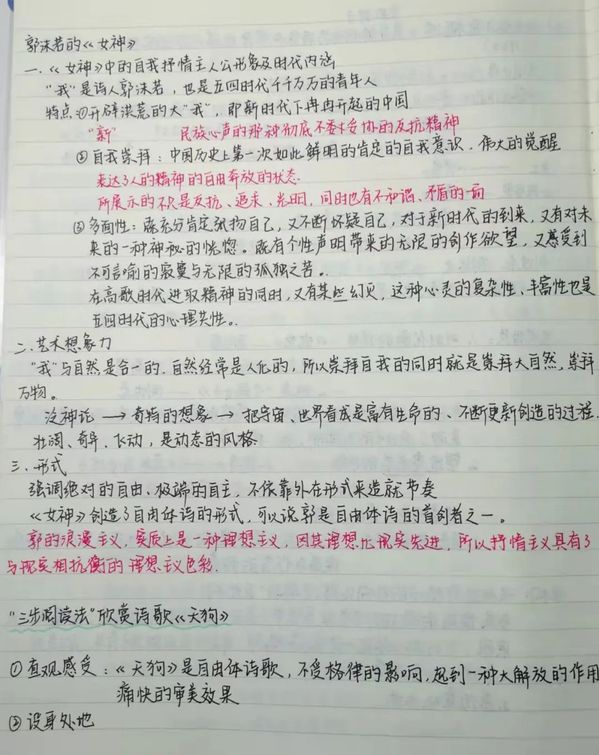 郭沫若的《女神》
一.《女神》中的自我抒情主人公形象及时代内涵
"我"是诗人郭沫若,也是五四时代千千万万的青年人
特点①开辟洪荒的大"我",即新时代下冉冉升起的中国
"新" 民族心声的那种彻底不委妥协的反抗精神
②自我崇拜:中国历史上第一次如此鲜明的肯定的自我意识.伟大的觉醒
表达了人的精神的自由奔放的状态.
所展示的不只是反抗、追求、光明,同时也有不和谐、矛盾的一面
③多面性:既充分肯定张扬自己,又不断怀疑自己,对于新时代的到来,又有对未
来的一种神秘的恍惚。既有个性声明带来的无限的创作欲望,又感受到
不可言喻的寂寞与无限的孤独之苦。
在高歌时代进取精神的同时,又有某些幻灭,这种心灵的复杂性、丰富性也是
五四时代的心理共性。
二.艺术想象力
"我"与自然是合一的.自然经常是人化的,所以崇拜自我的同时就是崇拜大自然,崇拜
万物。
泛神论 → 奇特的想象 → 把宇宙、世界看成是富有生命的、不断更新创造的过程.
壮阔、奇异、飞动,是动态的风格
三.形式
强调绝对的自由、极端的自主,不依靠外在形式来造就节奏
《女神》创造了自由体诗的形式,可以说郭是自由体诗的首创者之一。
郭的浪漫主义,实质上是一种理想主义,因其理想比现实先进,所以抒情主义具有了
与现实相抗衡的理想主义色彩.
"三步阅读法"欣赏诗歌《天狗》
①直观感受:《天狗》是自由体诗歌,不受格律的影响,起到一种大解放的作用
痛快的审美效果
②设身处地